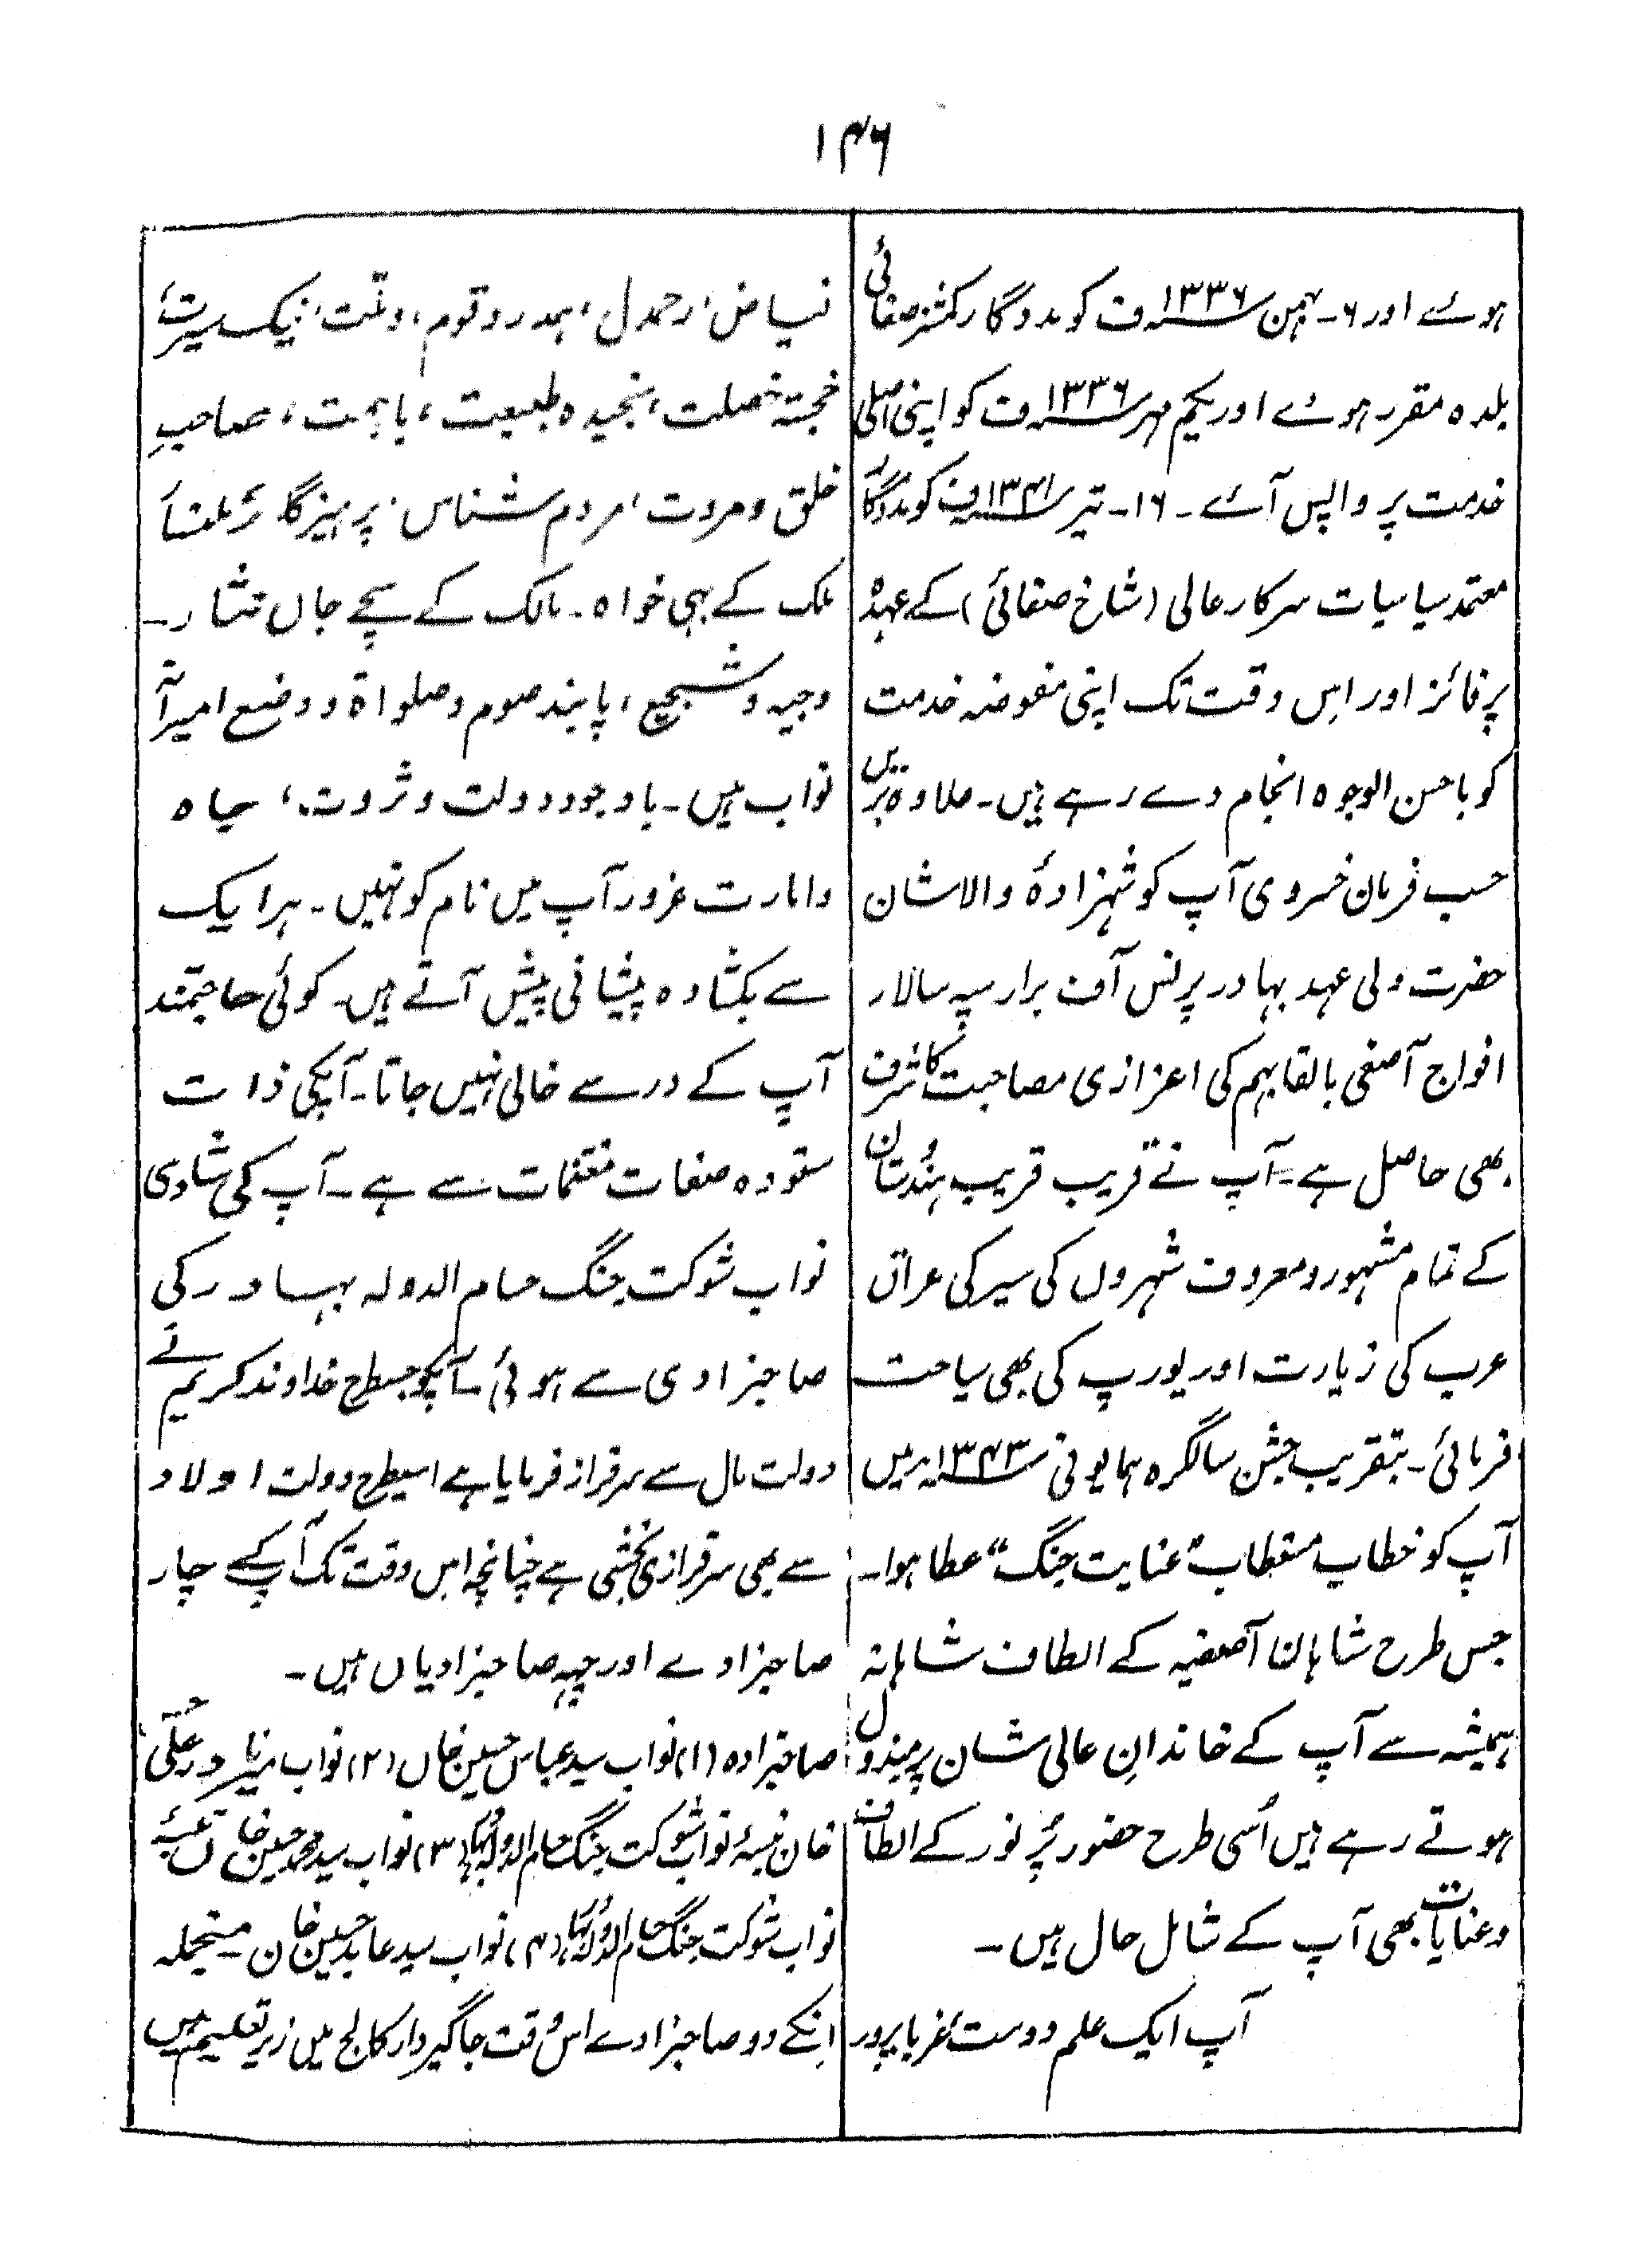 ۱۴۶
ہوئے اور ۶۔ بہمن ۱۳۳۶ف کو مددگار کمشنر صفائی
بلدہ مقرر ہوئے اور یکم مہر ۱۳۳۶ف کو اپنی اصلی
خدمت پر واپس آئے۔ ۱۶۔ تیر ۱۳۴۱ف کو مددگار
معتمد سیاسیات سرکار عالی (شاخ صفائی) کے عہدہ
پر فائز اور اس وقت تک اپنی مفوضہ خدمت
کو باحسن الوجوہ انجام دے رہے ہیں۔ علاوہ بریں
حسب فرمان خسروی آپ کو شہزادۂ والاشان
حضرت ولی عہد بہادر پرنس آف برار سپہ سالار
افواج آصفی بالقابہم کی اعزازی مصاحبت کا شرف
بھی حاصل ہے۔ آپ نے قریب قریب ہندوستان
کے تمام مشہور و معروف شہروں کی سیر کی عراق
عرب کی زیارت اور یورپ کی بھی سیاحت
فرمائی۔ بتقریب جشن سالگرہ ہمایونی ۱۳۴۳ میں
آپ کو خطاب مستطاب "عنایت جنگ" عطا ہوا۔
جس طرح شاہان آصفیہ کے الطاف شاہانہ
ہمیشہ سے آپ کے خاندانِ عالی شان پر مبذول
ہوتے رہے ہیں اُسی طرح حضور پُر نور کے الطاف
و عنایات بھی آپ کے شامل حال ہیں۔
آپ ایک علم دوست، غربا پرور
فیاض، رحمدل، ہمدرد قوم، و ملت، نیک سیرت،
خجستہ خصلت، سنجیدہ طبیعت، باہمت، صاحبِ
خلق و مروت، مردم شناس، پرہیزگار، ملنسار،
ملک کے بہی خواہ۔ مالک کے سچے جاں نثار۔
وجیہ و شجیع، پابند صوم و صلواۃ و وضع امیرانہ
نواب ہیں۔ باوجود دولت و ثروت، جاہ
و امارت غرور آپ میں نام کو نہیں۔ ہر ایک
سے بکشادہ پیشانی پیش آتے ہیں۔ کوئی حاجتمند
آپ کے در سے خالی نہیں جاتا۔ آپکی ذات
ستودہ صفات مغتنمات سے ہے۔ آپ کی شادی
نواب شوکت جنگ حسام الدولہ بہادر کی
صاحبزادی سے ہوئی۔ آپکو جسطرح خداوند کریم نے
دولت مال سے سرفراز فرمایا ہے اسیطرح دولت اولاد
سے بھی سرفرازی بخشی ہے چنانچہ اس وقت تک آپ کے چار
صاحبزادے اور چہہ صاحبزادیاں ہیں۔
صاحبزادہ (۱) نواب سید عباس حسین خاں (۲) نواب حیدر علی
خان نبیسۂ نواب شوکت جنگ حسام الدولہ بہادر (۳) نواب سید محمد حسین خاں نبیسۂ
نواب شوکت جنگ حسام الدولہ بہادر (۴) نواب سید عابد حسین خان۔ منجملہ
انکے دو صاحبزادے اس وقت جاگیردار کالج میں زیر تعلیم ہیں